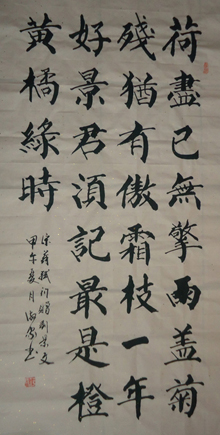 荷盡已無擎雨盖菊
殘猶有傲霜枝一年
好景君湏記最是橙
黄橘綠時
宋蘇軾贈劉景文
甲午夏月書